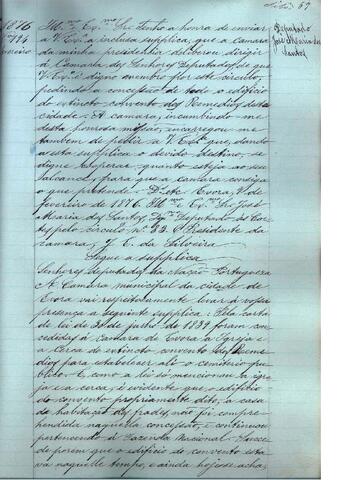 1876
Nº 194
Fevereiro
Deputado
José Maria dos
Santos
Illmo e Exmo Snr. Tenho a honra de enviar
a V. Exa a inclusa supplica, que a camara
da minha presidencia deliberou dirigir
á Camara dos Senhores Deputados, de que
V. Exa é digno membro por este circulo,
pedindo a concessão de todo o edificio
do extincto convento dos Remedios, desta
cidade. A camara, incumbindo-me
desta honrosa missão, encarregou-me
tambem de pedir a V. Exa que, dando
a esta supplica o devido destino, se
digne cooperar, quanto esteja ao seu
alcance, para que a camara consiga
o que pretende. Ds. etc. Evora, de
Fevereiro de 1876. Illmo e Exmo Snr. José
Maria dos Santos, Deputado ás Cor-
tes pelo circulo nº 82. O Presidente da
camara, J. C. da Silveira
Segue a supplica
Senhores deputados da Nação Portugueza
A Camara municipal da cidade de
Evora vai respeitosamente levar á vossa
presença a seguinte supplica: Pela carta
de lei de 30 de julho de 1839 foram con-
cedidos á camara de Evora a Igreja e
a Cerca do extincto convento dos Reme-
dios para estabelecer alli o cemiterio pu-
blico. E, como a lei só mencionou a igre-
ja e a cerca, é evidente que o edificio
do convento propriamente dito, a casa
da habitação dos frades, não foi compre-
hendida naquella concessão, e continuou
pertencendo á Fazenda Nacional. Succe-
de porem que o edificio do convento esta-
va naquelle tempo, e ainda hoje se acha,